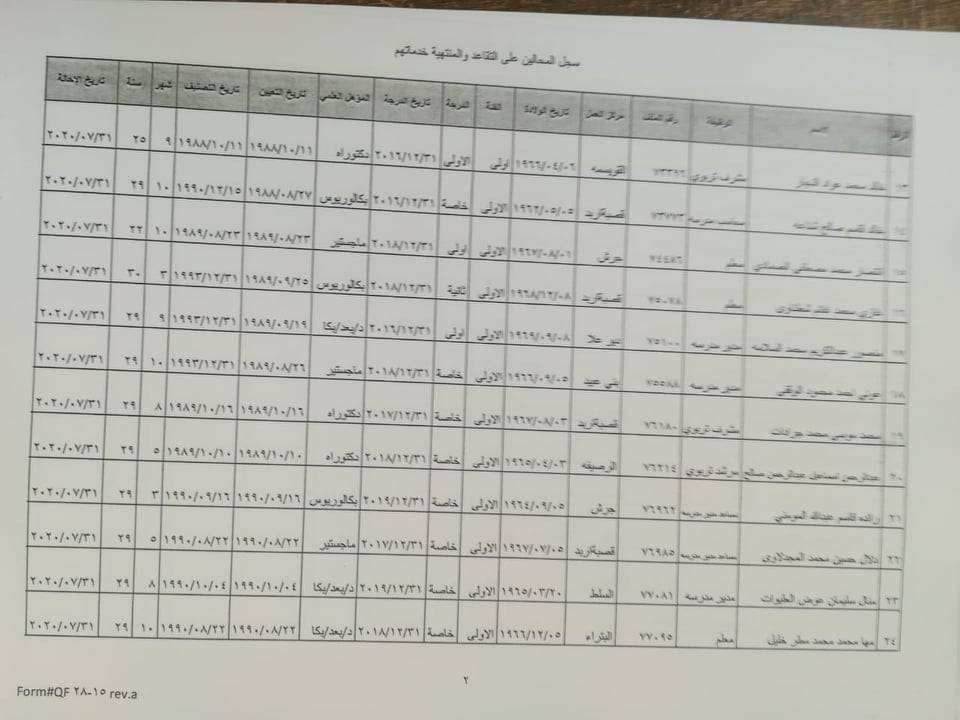 سجل المحالين على التقاعد والمنتهية خدماتهم
الرقم الاسم الوظيفة رقم الملف مركز العمل تاريخ الولادة الفئة الدرجة تاريخ الدرجة المؤهل العلمي تاريخ التعيين تاريخ التصنيف شهر سنة تاريخ الإحالة
١٣ خالد محمد عواد النجار مشرف تربوي ٧٣٣٩٦ القويسمه ١٩٦٦/٠٤/٠٦ اولى الاولى ٢٠١٦/١٢/٣١ دكتوراه ١٩٨٨/١٠/١١ ١٩٨٨/١٠/١١ ٩ ٢٥ ٢٠٢٠/٠٧/٣١
١٤ خالد قاسم صالح مدرسه ٧٣٧٧٣ قصبة اربد ١٩٦٢/٠٥/٠٥ الاولى خاصة ٢٠١٦/١٢/٣١ بكالوريوس ١٩٨٨/٠٨/٢٧ ١٩٩٠/١٢/١٥ ١٠ ٢٩ ٢٠٢٠/٠٧/٣١
١٥ انتصار محمد مصطفى الصمادي معلم ٧٤٤٨٦ جرش ١٩٦٧/٠٨/٠٦ الاولى اولى ٢٠١٨/١٢/٣١ ماجستير ١٩٨٩/٠٨/٢٣ ١٩٨٩/٠٨/٢٣ ١٠ ٢٢ ٢٠٢٠/٠٧/٣١
١٦ غازي محمد معلم ٧٥٠٧٨ قصبة اربد ١٩٦٨/١٢/٠٨ الاولى ثانية ٢٠١٨/١٢/٣١ بكالوريوس ١٩٨٩/٠٩/٢٥ ١٩٩٣/١٢/٣١ ٣ ٣٠ ٢٠٢٠/٠٧/٣١
١٧ منصور عبدالكريم محمد السلامه مدير مدرسه ٧٥١٠٠ دير علا ١٩٦٩/٠٩/٠٨ الاولى اولى ٢٠١٦/١٢/٣١ د/بعد/بكا ١٩٨٩/٠٩/١٩ ١٩٩٣/١٢/٣١ ٩ ٢٩ ٢٠٢٠/٠٧/٣١
١٨ عوني احمد محمود الوقفي مدير مدرسه ٧٥٥٨٨ بني عبيد ١٩٦٦/٠٩/٠٥ الاولى خاصة ٢٠١٨/١٢/٣١ ماجستير ١٩٨٩/٠٨/٢٦ ١٩٩٣/١٢/٣١ ١٠ ٢٩ ٢٠٢٠/٠٧/٣١
١٩ محمد موسى محمد جرادات مشرف تربوي ٧٦١٨٠ قصبة اربد ١٩٦٧/٠٨/٠٣ الاولى خاصة ٢٠١٧/١٢/٣١ دكتوراه ١٩٨٩/١٠/١٦ ١٩٨٩/١٠/١٦ ٨ ٢٩ ٢٠٢٠/٠٧/٣١
٢٠ عبدالرحمن اسماعيل عبدالرحمن صالح مرشد تربوي ٧٦٢١٤ الرصيفه ١٩٦٥/٠٤/٠٣ الاولى خاصة ٢٠١٨/١٢/٣١ دكتوراه ١٩٨٩/١٠/١٠ ١٩٨٩/١٠/١٠ ٥ ٢٩ ٢٠٢٠/٠٧/٣١
٢١ رائده قاسم عبدالله المومني مساعد مدير مدرسه ٧٦٩٦٢ جرش ١٩٦٤/٠٩/٠٥ الاولى خاصة ٢٠١٩/١٢/٣١ بكالوريوس ١٩٩٠/٠٩/١٦ ١٩٩٠/٠٩/١٦ ٣ ٢٩ ٢٠٢٠/٠٧/٣١
٢٢ دلال حسين محمد المجدلاوي مساعد مدير مدرسه ٧٦٩٨٥ قصبة اربد ١٩٦٧/٠٧/٠٥ الاولى خاصة ٢٠١٧/١٢/٣١ ماجستير ١٩٩٠/٠٨/٢٢ ١٩٩٠/٠٨/٢٢ ٥ ٢٩ ٢٠٢٠/٠٧/٣١
٢٣ منال سليمان عوض الحليوات مدير مدرسه ٧٧٠٨١ السلط ١٩٦٥/٠٣/٢٠ الاولى خاصة ٢٠١٩/١٢/٣١ د/بعد/بكا ١٩٩٠/١٠/٠٤ ١٩٩٠/١٠/٠٤ ٨ ٢٩ ٢٠٢٠/٠٧/٣١
٢٤ مها محمد محمد مطر خليل معلم ٧٧٠٩٥ البتراء ١٩٦٦/١٢/٠٥ الاولى خاصة ٢٠١٨/١٢/٣١ د/بعد/بكا ١٩٩٠/٠٨/٢٢ ١٩٩٠/٠٨/٢٢ ١٠ ٢٩ ٢٠٢٠/٠٧/٣١
٢
Form#QF ٢٨-١٥ rev.a